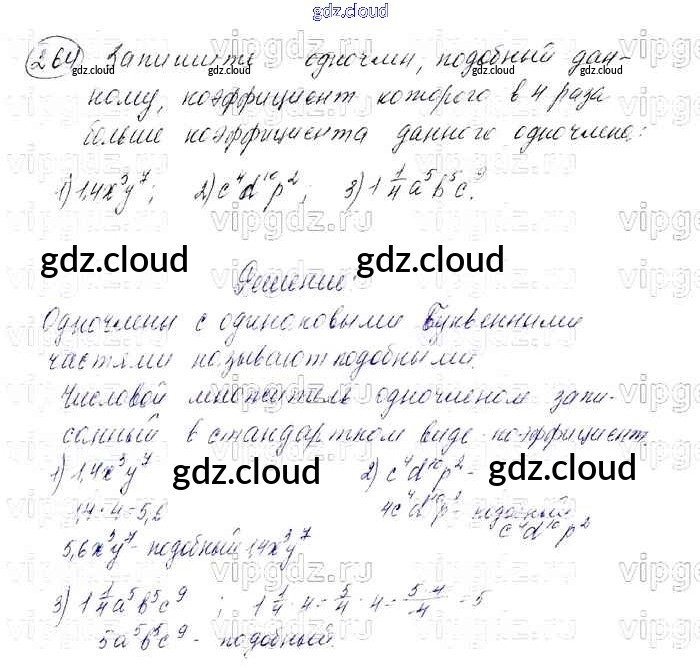 gdz.cloud
264 Запишите одночлен, подобный дан-
ному, коэффициент которого в 4 раза
больше коэффициента данного одночлена:
1) 1,4x³y⁷; 2) c⁴d¹⁰p²; 3) 1 1/4 a⁵b⁵c⁹.
gdz.cloud gdz.cloud
Решение:
Одночлены с одинаковыми буквенными
частями называют подобными.
Числовой множитель одночленом запи-
санный в стандартном виде - коэффициент.
1) 1,4x³y⁷ 2) c⁴d¹⁰p² -
gdz.cloud gdz.cloud
1,4·4=5,6 4c⁴d¹⁰p² - подобный
c⁴d¹⁰p²
5,6x³y⁷ - подобный 1,4x³y⁷
3) 1 1/4 a⁵b⁵c⁹ ; 1 1/4 · 4 = 5/4 · 4 = 5·4/4 = 5
5a⁵b⁵c⁹ - подобный.